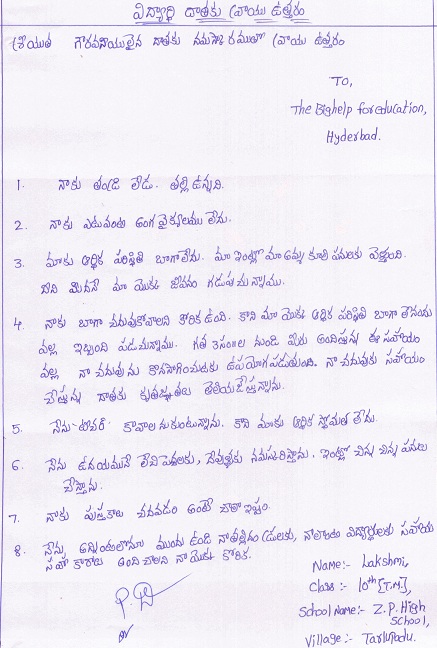 విద్యార్థి దాతకు వ్రాయు ఉత్తరం
శ్రీయుత గౌరవనీయులైన దాతకు నమస్కారములతో వ్రాయు ఉత్తరం
To,
The Bighelp for education,
Hyderbad.
1. నాకు తండ్రి లేడు. తల్లి ఉన్నది.
2. నాకు ఎటువంటి అంగవైక్యలము లేదు.
3. మాకు ఆర్థిక పరిస్థితి బాగాలేదు. మా ఇంట్లో మా అమ్మ కూలి పనులకు వెళ్తుంది.
దీని మీదనే మా యొక్క జీవనం గడుపుచున్నాము.
4. నాకు బాగా చదువుకోవాలని కోరిక ఉంది. కాని మా యొక్క ఆర్థిక పరిస్థితి బాగా లేనందు
వల్ల ఇబ్బంది పడుచున్నాము. గత 3సం॥ల నుండి మీరు అందిస్తున్న ఈ సహాయం
వల్ల నా చదువును కొనసాగించుటకు ఉపయోగపడుతుంది. నా చదువుకు సహాయం
చేస్తున్న దాతకు కృతజ్ఞతలు తెలియజేస్తున్నాను.
5. నేను టీచర్ కావాలనుకుంటున్నాను. కాని మాకు ఆర్థిక స్తోమత లేదు.
6. నేను ఉదయమునే లేచి పెద్దలకు, దేవుళ్ళకు నమస్కరిస్తాను. ఇంట్లో చిన్న చిన్న పనులు
చేస్తాను.
7. నాకు పుస్తకాలు చదవడం అంటే చాలా ఇష్టం.
8. నేను, అన్నింటిలోనూ ముందు ఉండి నా తల్లిదండ్రులకు, నాలాంటి విద్యార్థులకు సహాయ
సహకారాలు అందించాలని నా యొక్క కోరిక.
Name:- Lakshmi,
Class:- 10th [T.M],
School Name:- Z.P. High
School,
Village:- Tarlupadu.